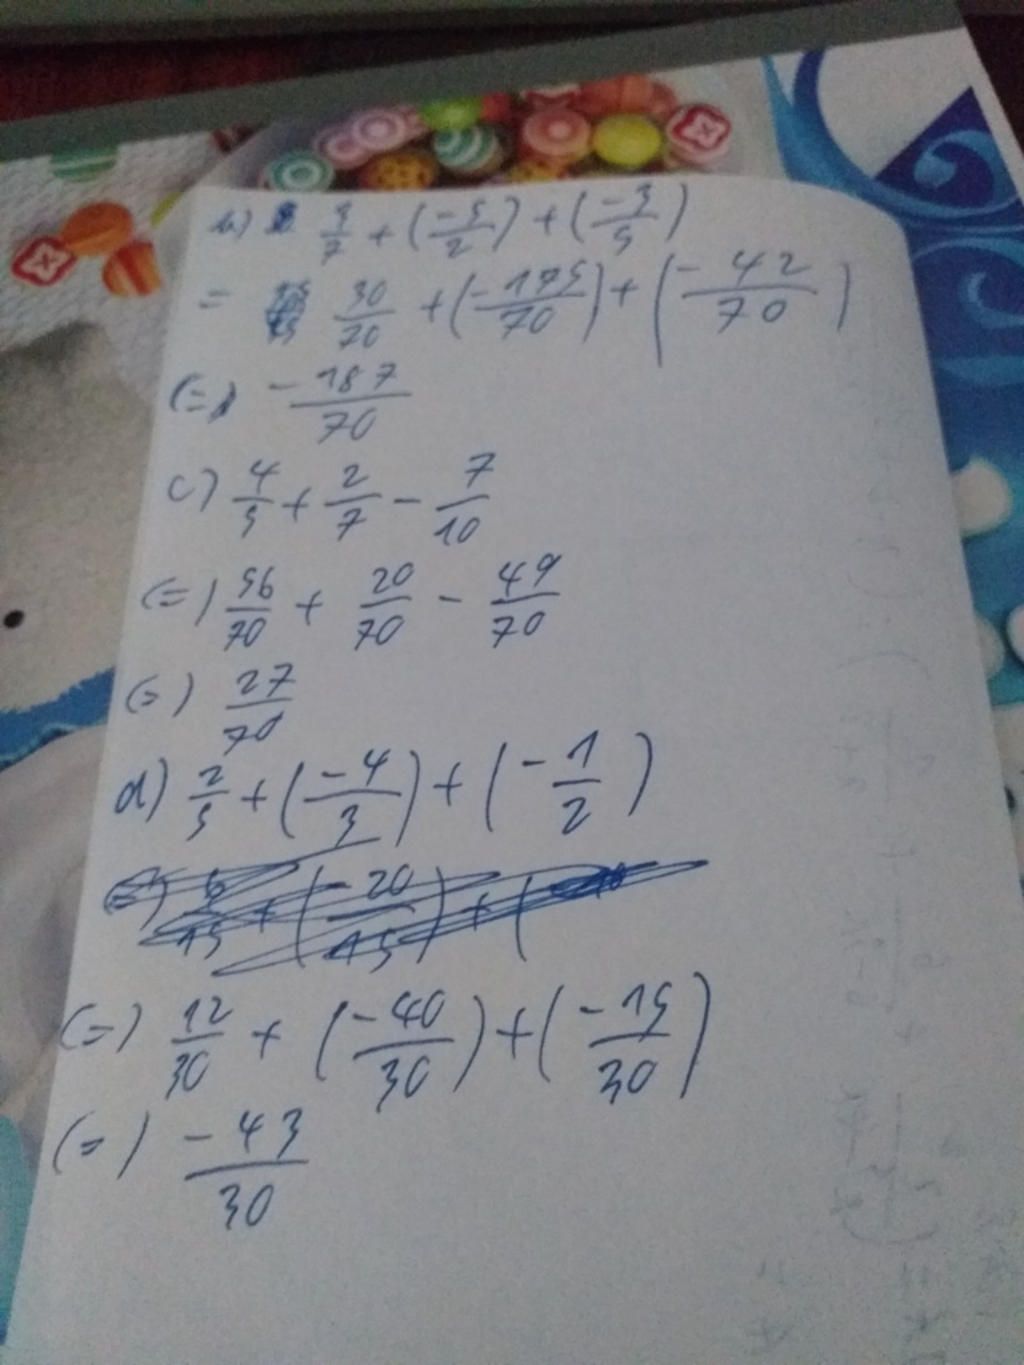 b) 3/7 + (-5/2) + (-3/5)
= 30/70 + (-175/70) + (-42/70)
(=) -187/70
c) 4/5 + 2/7 - 7/10
(=) 56/70 + 20/70 - 49/70
(=) 27/70
d) 2/5 + (-4/3) + (-1/2)
(=) 6/15 + (-20/15) + (
(=) 12/30 + (-40/30) + (-15/30)
(=) -43/30